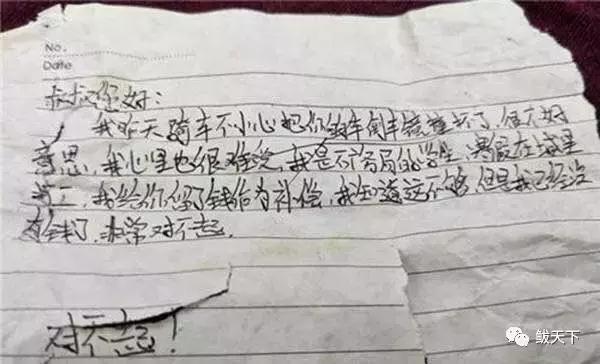 No.
Date
叔叔您好:
我昨天骑车不小心把你的车倒车镜撞坏了,很不好
意思,我心里也很难受,我是一个高中的学生,寒假在城里
打工,我给你留了钱作为补偿,我知道这不够,但是我已经没
有钱了,非常对不起.
对不起!
鲅天下